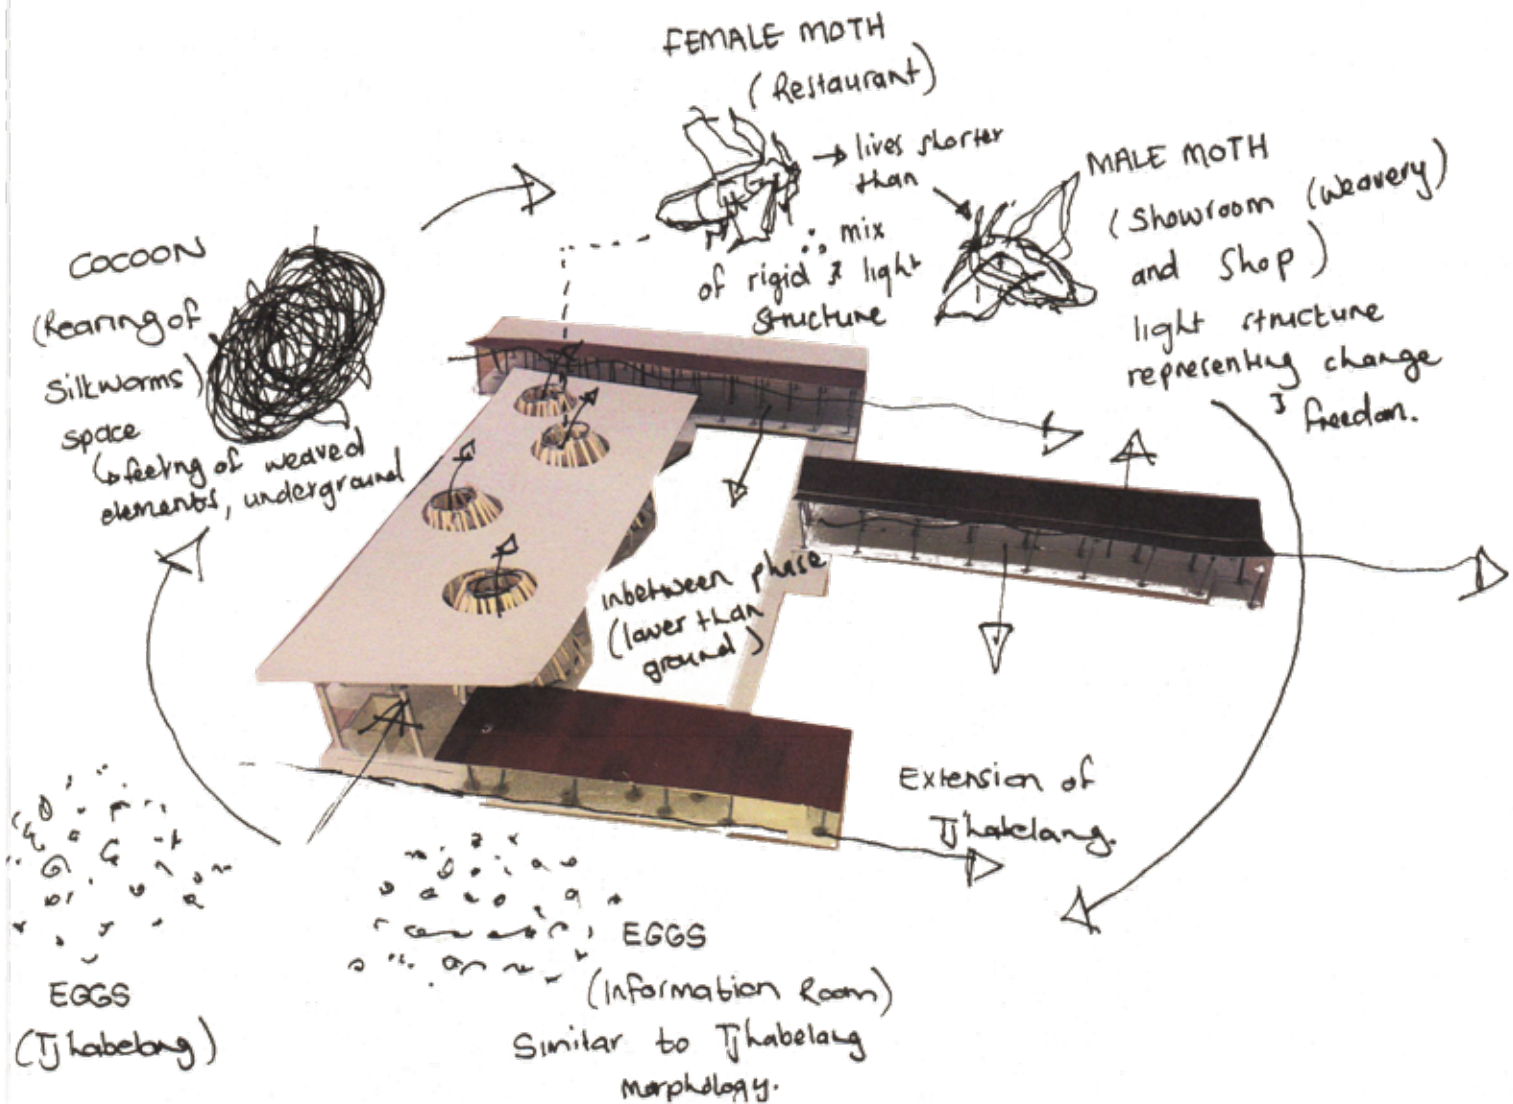 FEMALE MOTH
(Restaurant)
→ lives shorter
than
∴ mix
of rigid & light
structure
MALE MOTH
(Showroom (weavery)
and shop)
light structure
representing change
& freedom.
COCOON
(Rearing of
Silkworms)
space
↳ feeling of weaved
elements, underground
inbetween phase
(lower than
ground)
Extension of
Tjhabelang.
EGGS
(Tjhabelang)
EGGS
(Information Room)
Similar to Tjhabelang
morphology.